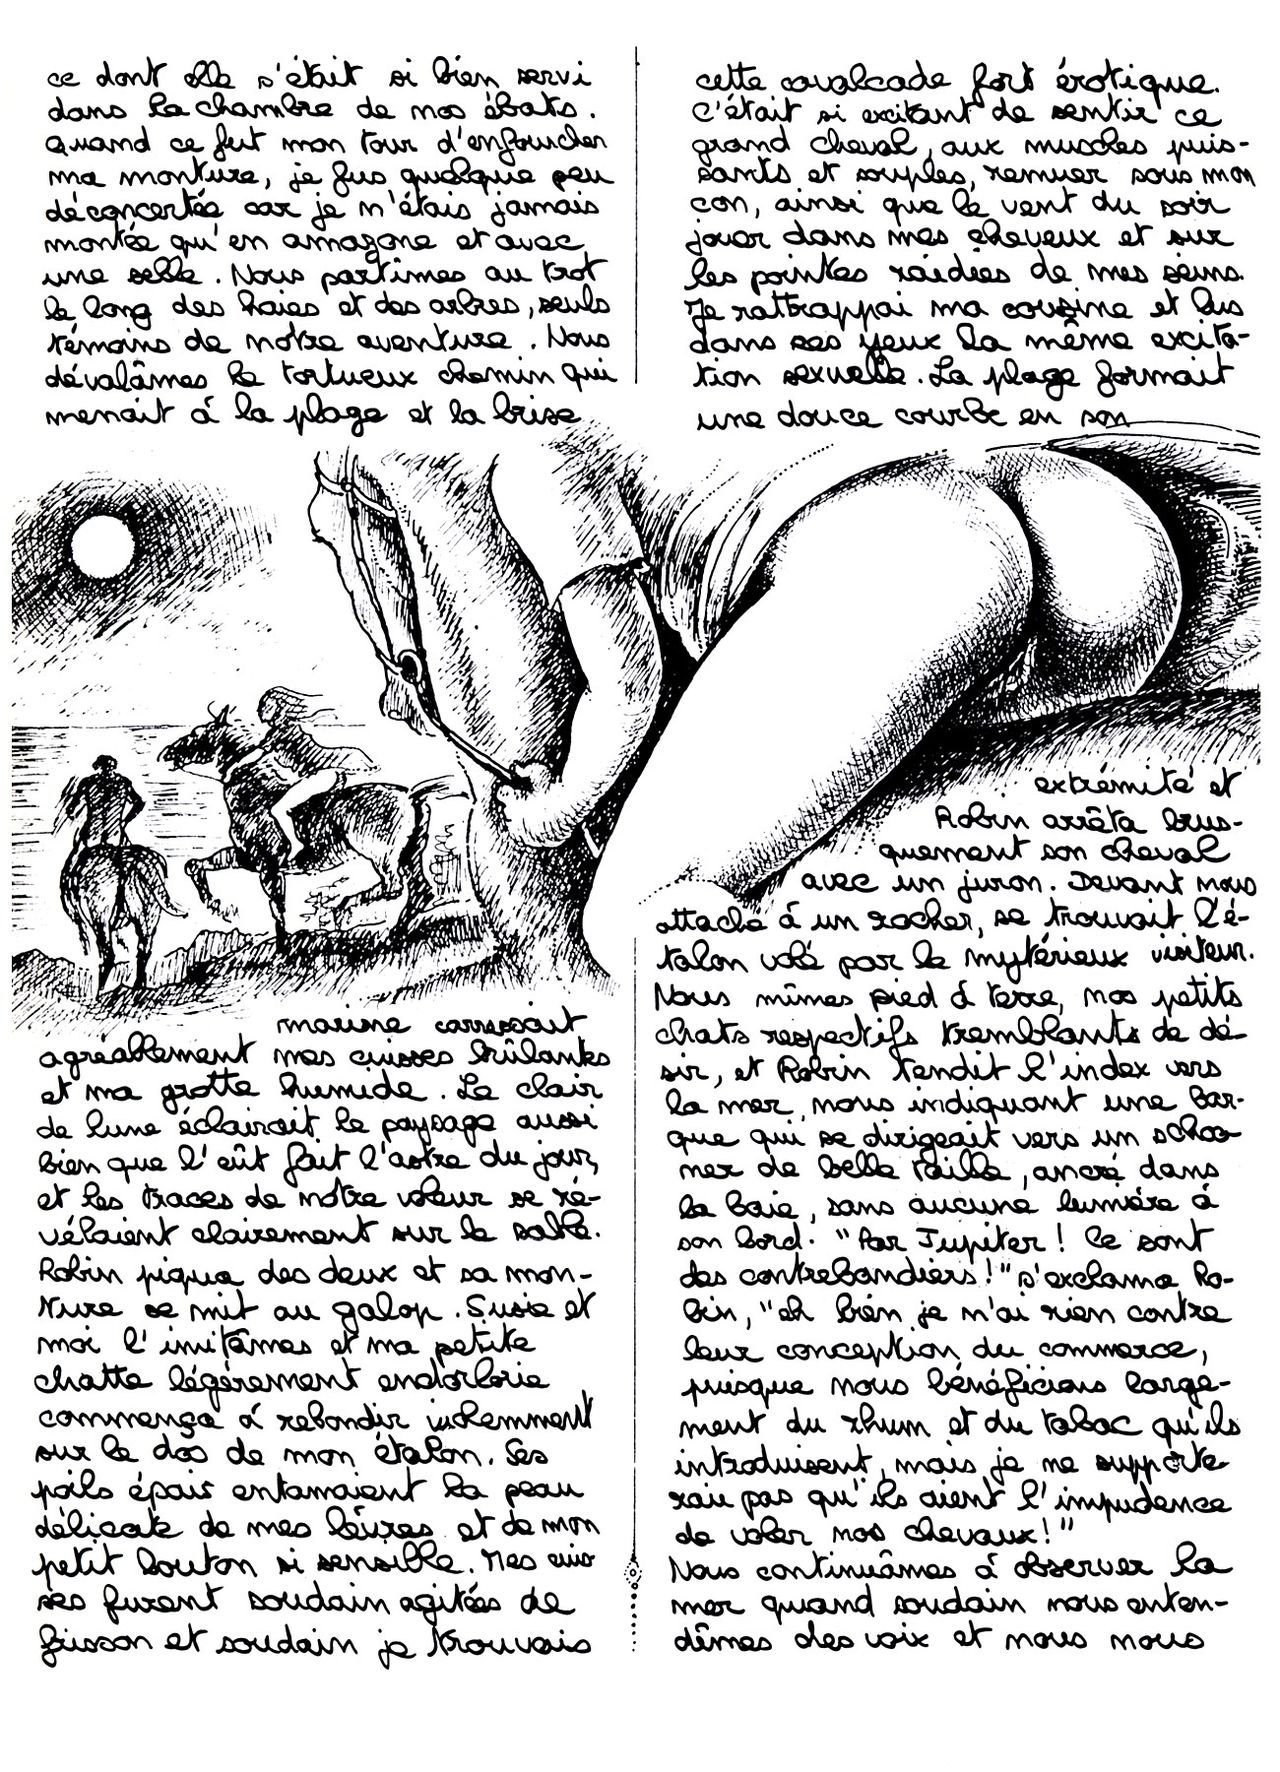 ce dont elle s'était si bien servi
dans la chambre de nos ébats.
Quand ce fut mon tour d'enfourcher
ma monture, je fus quelque peu
déconcertée car je n'étais jamais
montée qu'en amazone et avec
une selle. Nous partîmes au trot
le long des haies et des arbres, seuls
témoins de notre aventure. Nous
dévalâmes le tortueux chemin qui
menait à la plage et la brise
marine carressait
agréablement mes cuisses brûlantes
et ma grotte humide. Le clair
de lune éclairait le paysage aussi
bien que l'eût fait l'astre du jour,
et les traces de notre voleur se ré-
vélaient clairement sur le sable.
Robin piqua des deux et sa mon-
ture se mit au galop. Susie et
moi l'imitâmes et ma petite
chatte légèrement endolorie
commença à rebondir violemment
sur le dos de mon étalon. Ses
poils épais entamaient la peau
délicate de mes lèvres et de mon
petit bouton si sensible. Mes cuis
ses furent soudain agitées de
frisson et soudain je trouvais
cette cavalcade fort érotique.
C'était si excitant de sentir ce
grand cheval, aux muscles puis-
sants et souples, remuer sous mon
con, ainsi que le vent du soir
jouer dans mes cheveux et sur
les pointes raidies de mes seins.
Je rattrappai ma cousine et lus
dans ses yeux la même excita-
tion sexuelle. La plage formait
une douce courbe en son
extrémité et
Robin arrêta brus-
quement son cheval
avec un juron. Devant nous
attaché à un rocher, se trouvait l'é-
talon volé par le mystérieux visiteur.
Nous mîmes pied à terre, nos petits
chats respectifs tremblants de dé-
sir, et Robin tendit l'index vers
la mer, nous indiquant une bar-
que qui se dirigeait vers un schoo-
ner de belle taille, ancré dans
la baie, sans aucune lumière à
son bord. "Par Jupiter! Ce sont
des contrebandiers!" s'exclama Ro-
bin, "eh bien je n'ai rien contre
leur conception du commerce,
puisque nous bénéficions large-
ment du rhum et du tabac qu'ils
introduisent, mais je ne supporte
rais pas qu'ils aient l'impudence
de voler nos chevaux!"
Nous continuâmes à observer la
mer quand soudain nous enten-
dîmes des voix et nous nous